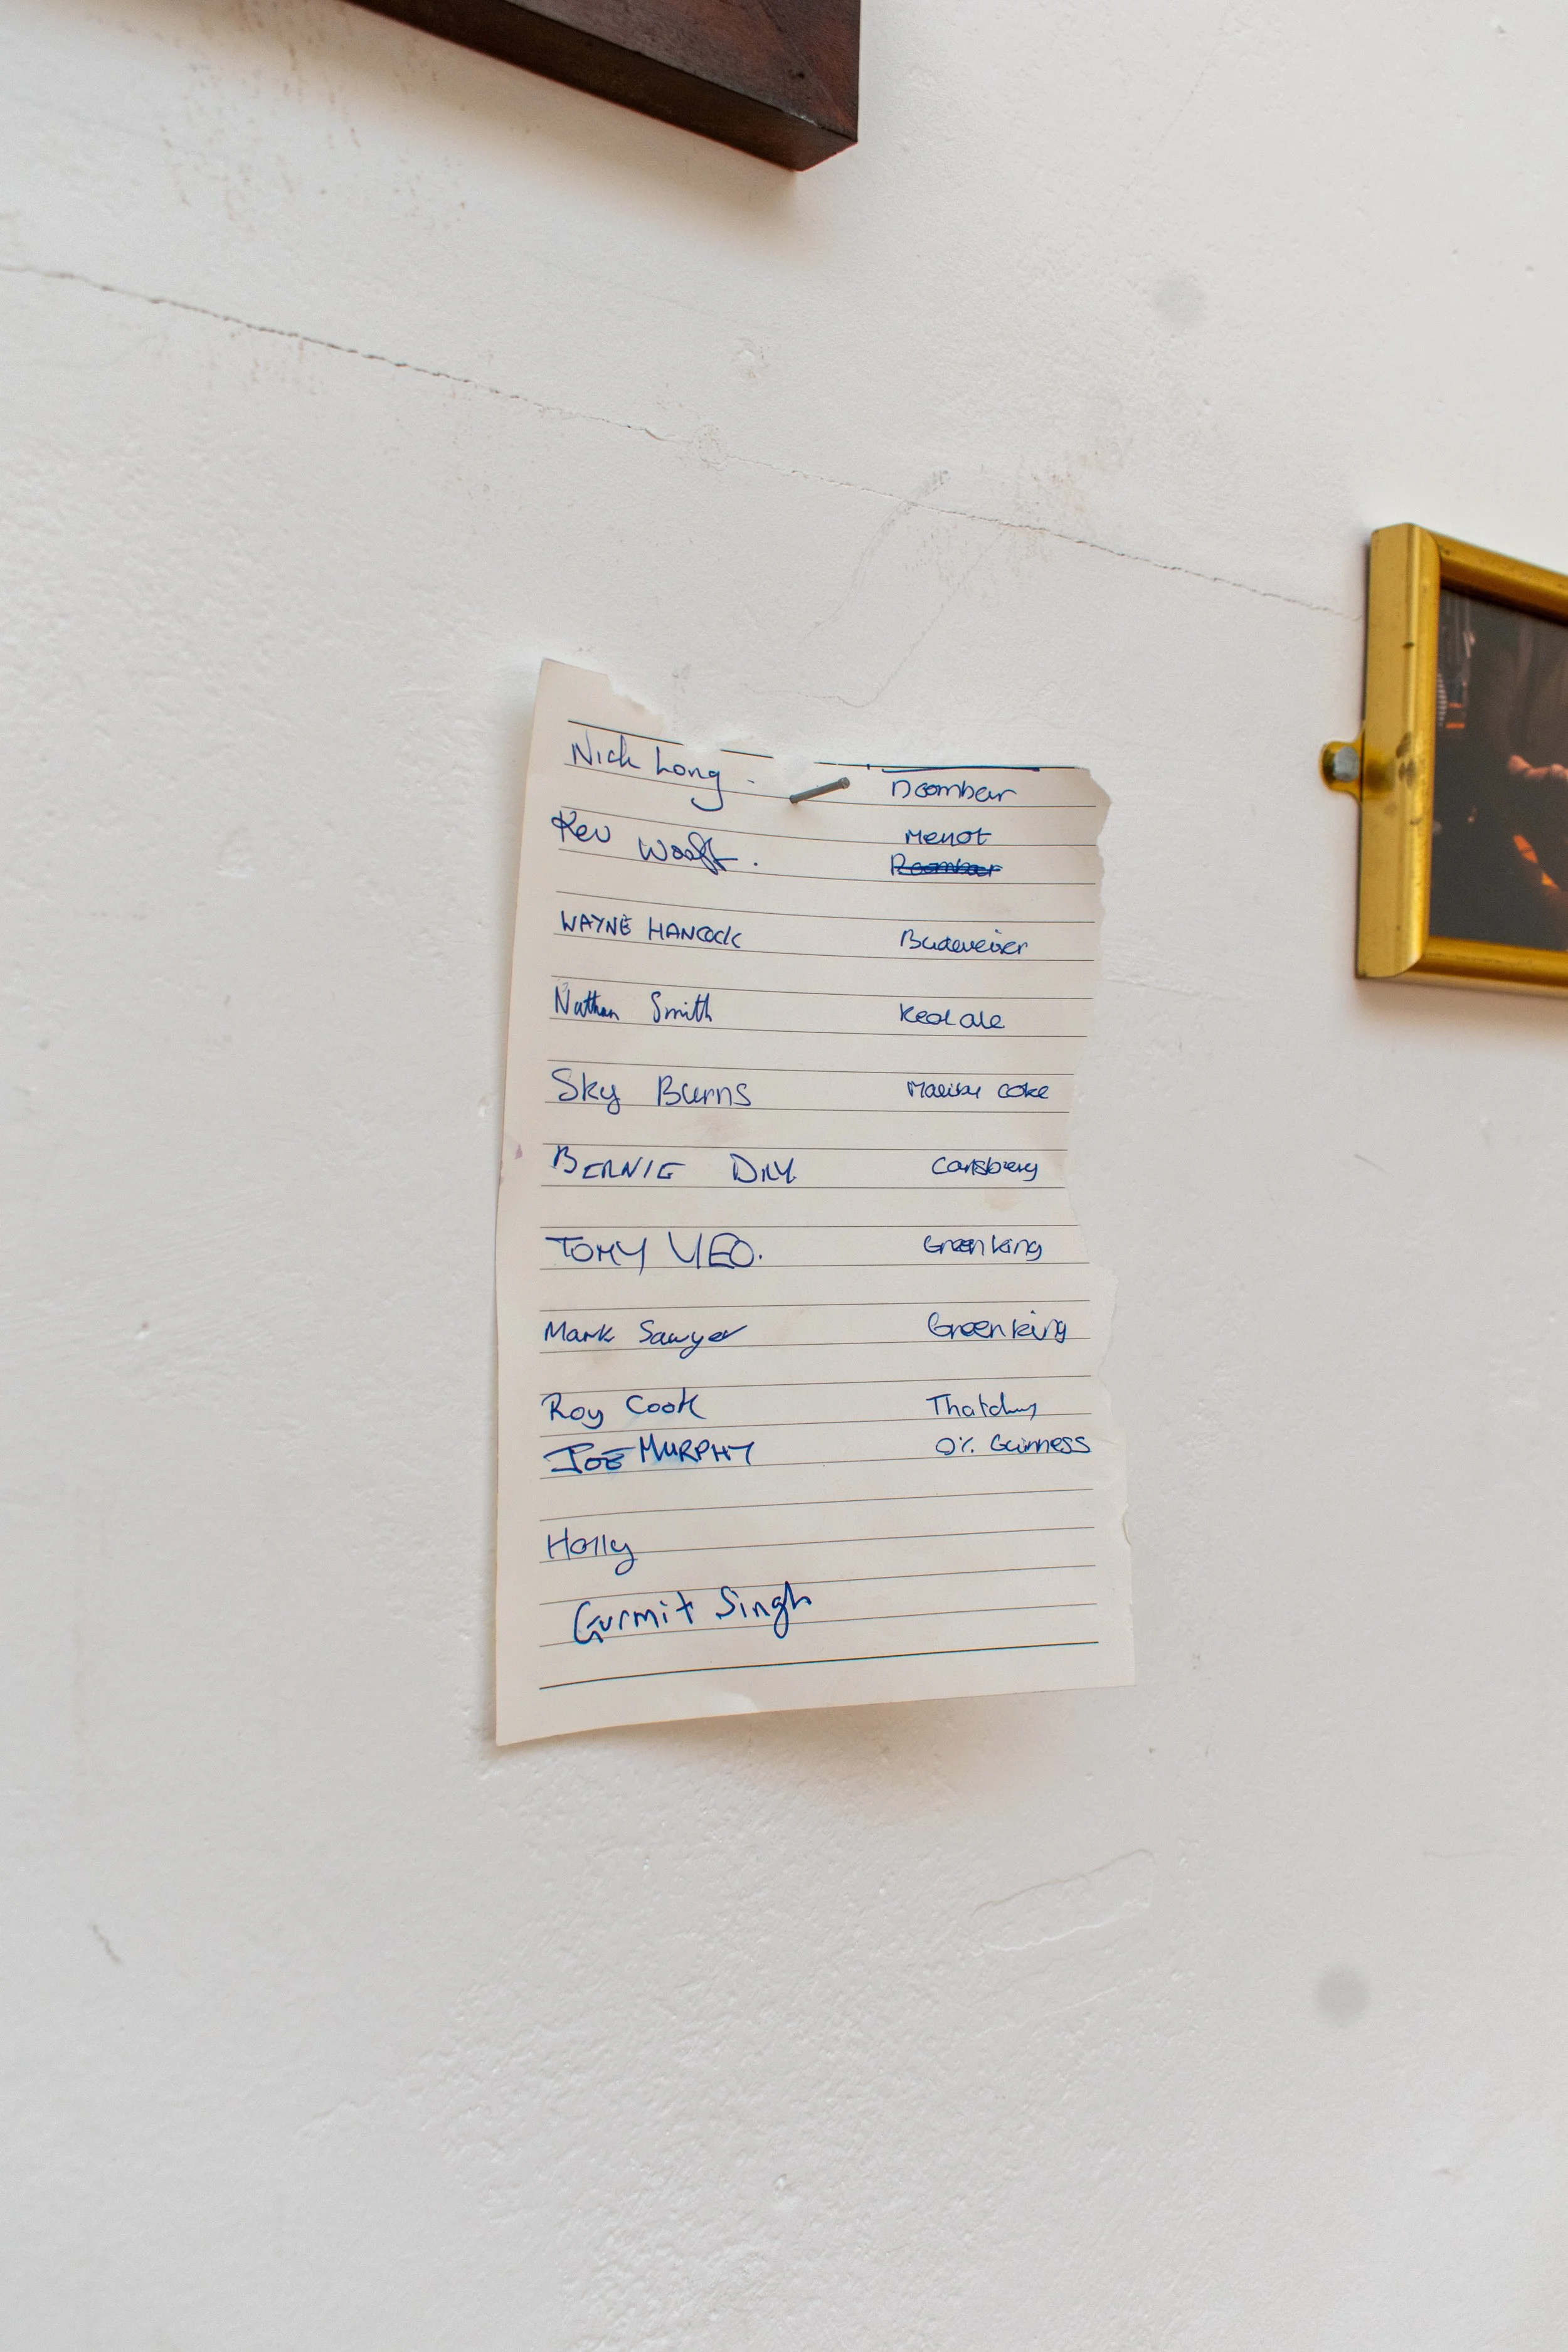 Nick Long. Doombar
Kev Menot
Doombar
WAYNE HANCOCK Budweiser
Nathan Smith Real ale
Sky Burns Malibu coke
BERNIE Carlsberg
TONY YEO. Green king
Mark Sawyer Green king
Roy Cook Thatchers
JOE MURPHY 0% Guinness
Holly
Gurmit Singh